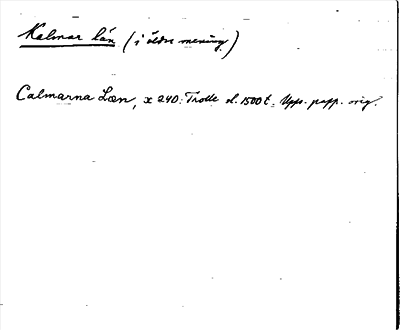 Kalmar län (i äldre mening)
Calmarna Læn, x 240: Trolle sl. 1500 t. Upps. papp. orig.